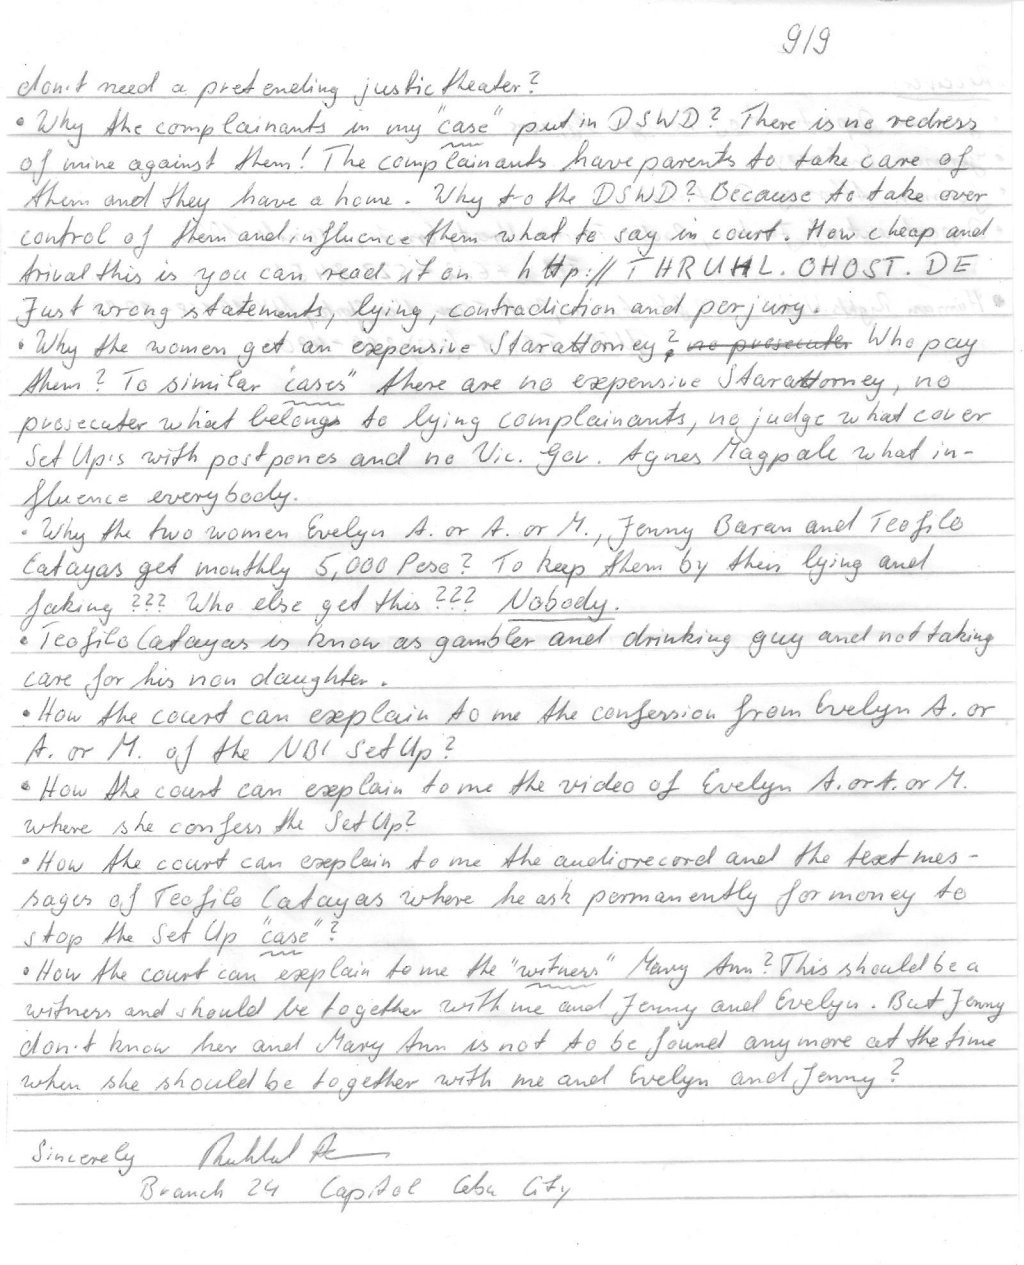 9/9
don't need a pretending justic theater?
• Why the complainants in my "case" put in DSWD? There is no redress
of mine against them! The complainants have parents to take care of
them and they have a home. Why to the DSWD? Because to take over
control of them and influence them what to say in court. How cheap and
trival this is you can read it on http://THRUHL.OHOST.DE
Just wrong statements, lying, contradiction and perjury.
• Why the women get an expensive Starattorney? no prosecuter Who pay
them? To similar "cases" there are no expensive Starattorney, no
prosecuter what belongs to lying complainants, no judge what cover
Set Up's with postpones and no Vic. Gov. Agnes Magpale what in-
fluence everybody.
• Why the two women Evelyn A. or A. or M., Jenny Baran and Teofilo
Catayas get monthly 5,000 Peso? To keep them by their lying and
faking??? Who else get this??? Nobody.
• Teofilo Catayas is know as gambler and drinking guy and not taking
care for his non daughter.
• How the court can explain to me the confession from Evelyn A. or
A. or M. of the NBI Set Up?
• How the court can explain to me the video of Evelyn A. or A. or M.
where she confess the Set Up?
• How the court can explain to me the audiorecord and the text mes-
sages of Teofilo Catayas where he ask permanently for money to
stop the Set Up "case"?
• How the court can explain to me the "witness" Mary Ann? This should be a
witness and should be together with me and Jenny and Evelyn. But Jenny
don't know her and Mary Ann is not to be found anymore at the time
when she should be together with me and Evelyn and Jenny?
Sincerely
Branch 24 Capitol Cebu City